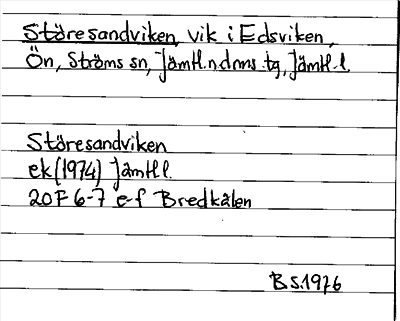 Störesandviken, vik i Edsviken,
Ön, Ströms sn, Jämtl.n.dms.tg, Jämtl.l.
Störesandviken
ek (1974) Jämtl l.
20F 6-7 e-f Bredkälen
B S.1976